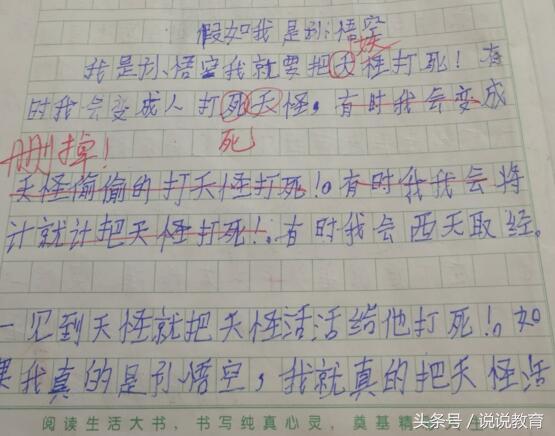 假如我是孙悟空
妖
我是孙悟空我就要把天怪打死！有
时我会变成人打死天怪，有时我会变成
死
删掉！
天怪偷偷的打天怪打死！。有时我我会将
计就计把天怪打死！。有时我会西天取经。
一见到天怪就把天怪活活给他打死！。如
果我真的是孙悟空，我就真的把天怪活
阅读生活大书，书写纯真心灵，奠基精
头条号／说说教育